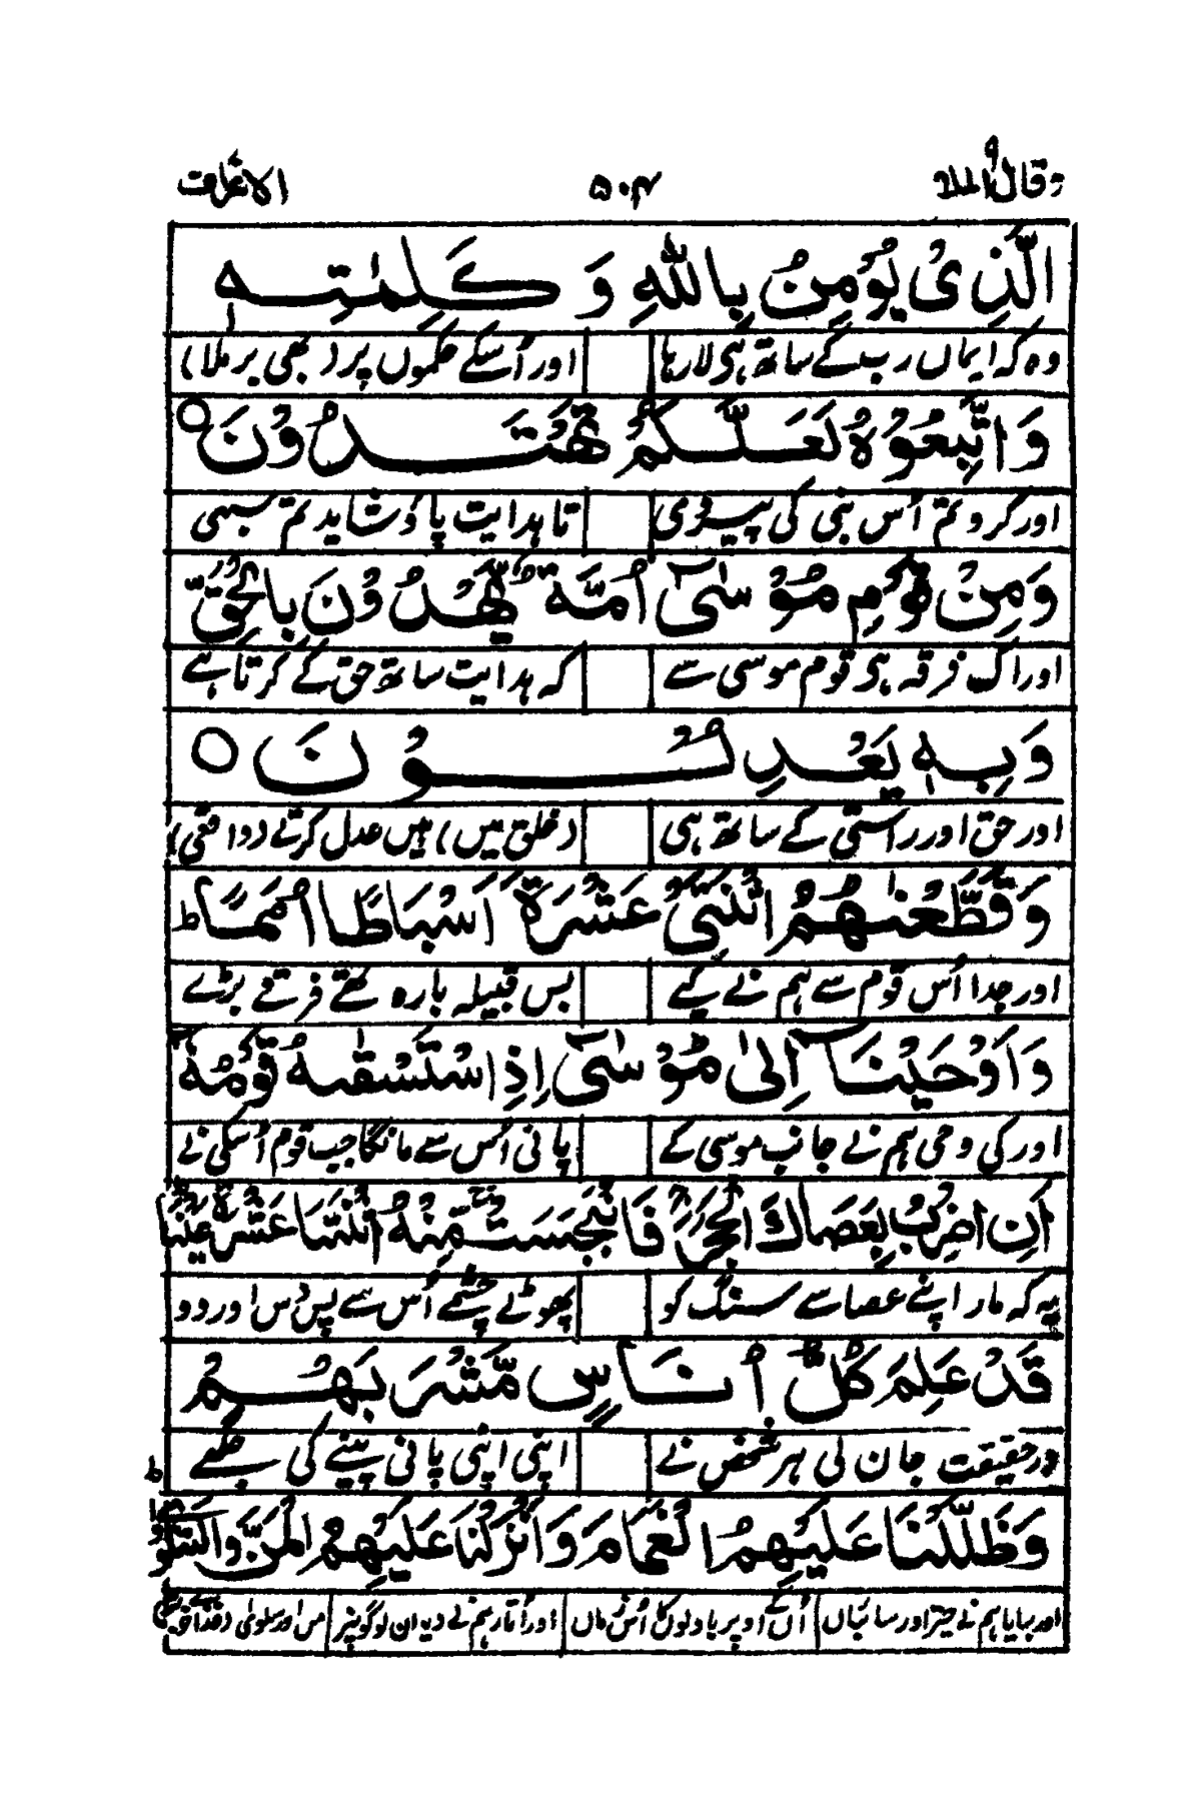 وقال الملا ۹ ۵۰۴ الاعراف
الَّذِیْ یُؤْمِنُ بِاللّٰهِ وَ كَلِمٰتِهٖ
وہ کہ ایماں رب کے ساتھ ہی لا رہا اور اُسکے حکموں پر (بھی برملا)
وَاتَّبِعُوْهُ لَعَلَّكُمْ تَهْتَدُوْنَ ○
اور کرو تم اُس نبی کی پیروی تا ہدایت پاؤ شاید تم سبھی
وَمِنْ قَوْمِ مُوْسٰۤی اُمَّةٌ یَّهْدُوْنَ بِالْحَقِّ
اور اک فرقہ ہی قوم موسی سے کہ ہدایت ساتھ حق کے کرتا ہے
وَبِهٖ یَعْدِلُوْنَ ○
اور حق اور راستی کے ساتھ ہی (خلق میں) ہیں عدل کرتے (واقعی)
وَقَطَّعْنٰهُمُ اثْنَتَیْ عَشْرَةَ اَسْبَاطًا اُمَمًا ؕ
اور جدا اُس قوم سے ہم نے کیے بس قبیلہ بارہ تھے فرقے بڑے
وَاَوْحَیْنَاۤ اِلٰی مُوْسٰۤی اِذِ اسْتَسْقٰىهُ قَوْمُهٗۤ
اور کی وحی ہم نے جانب موسی کے پانی اُس سے مانگا جب قوم اُسکی نے
اَنِ اضْرِبْ بِّعَصَاكَ الْحَجَرَ ۚ فَانْۢبَجَسَتْ مِنْهُ اثْنَتَا عَشْرَةَ عَیْنًا ؕ
یہ کہ مار اپنے عصا سے سنگ کو پھوٹے چشمے اُس سے پس دس اور دو
قَدْ عَلِمَ كُلُّ اُنَاسٍ مَّشْرَبَهُمْ ؕ
در حقیقت جان لی ہر شخص نے اپنی اپنی پانی پینے کی جگہ
وَظَلَّلْنَا عَلَیْهِمُ الْغَمَامَ وَاَنْزَلْنَا عَلَیْهِمُ الْمَنَّ وَالسَّلْوٰی
اور بنایا ہم نے چتر اور سائباں اُن کے اوپر بادلوں کا اُس زماں اور اُتار ہم نے دیہ ان لوگوں پر من اور سلوی